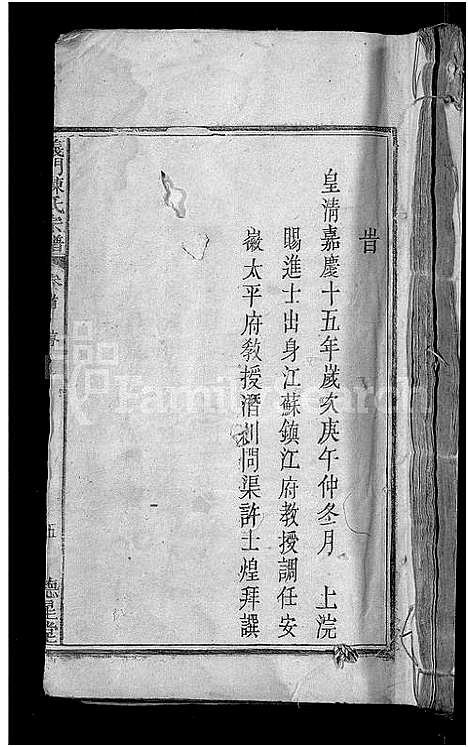 旹
皇清嘉慶十五年歲次庚午仲冬月 上浣
賜進士出身江蘇鎮江府教授調任安
徽太平府教授潛川問渠許士煌拜譔
義門陳氏宗譜 卷首
五 德星堂